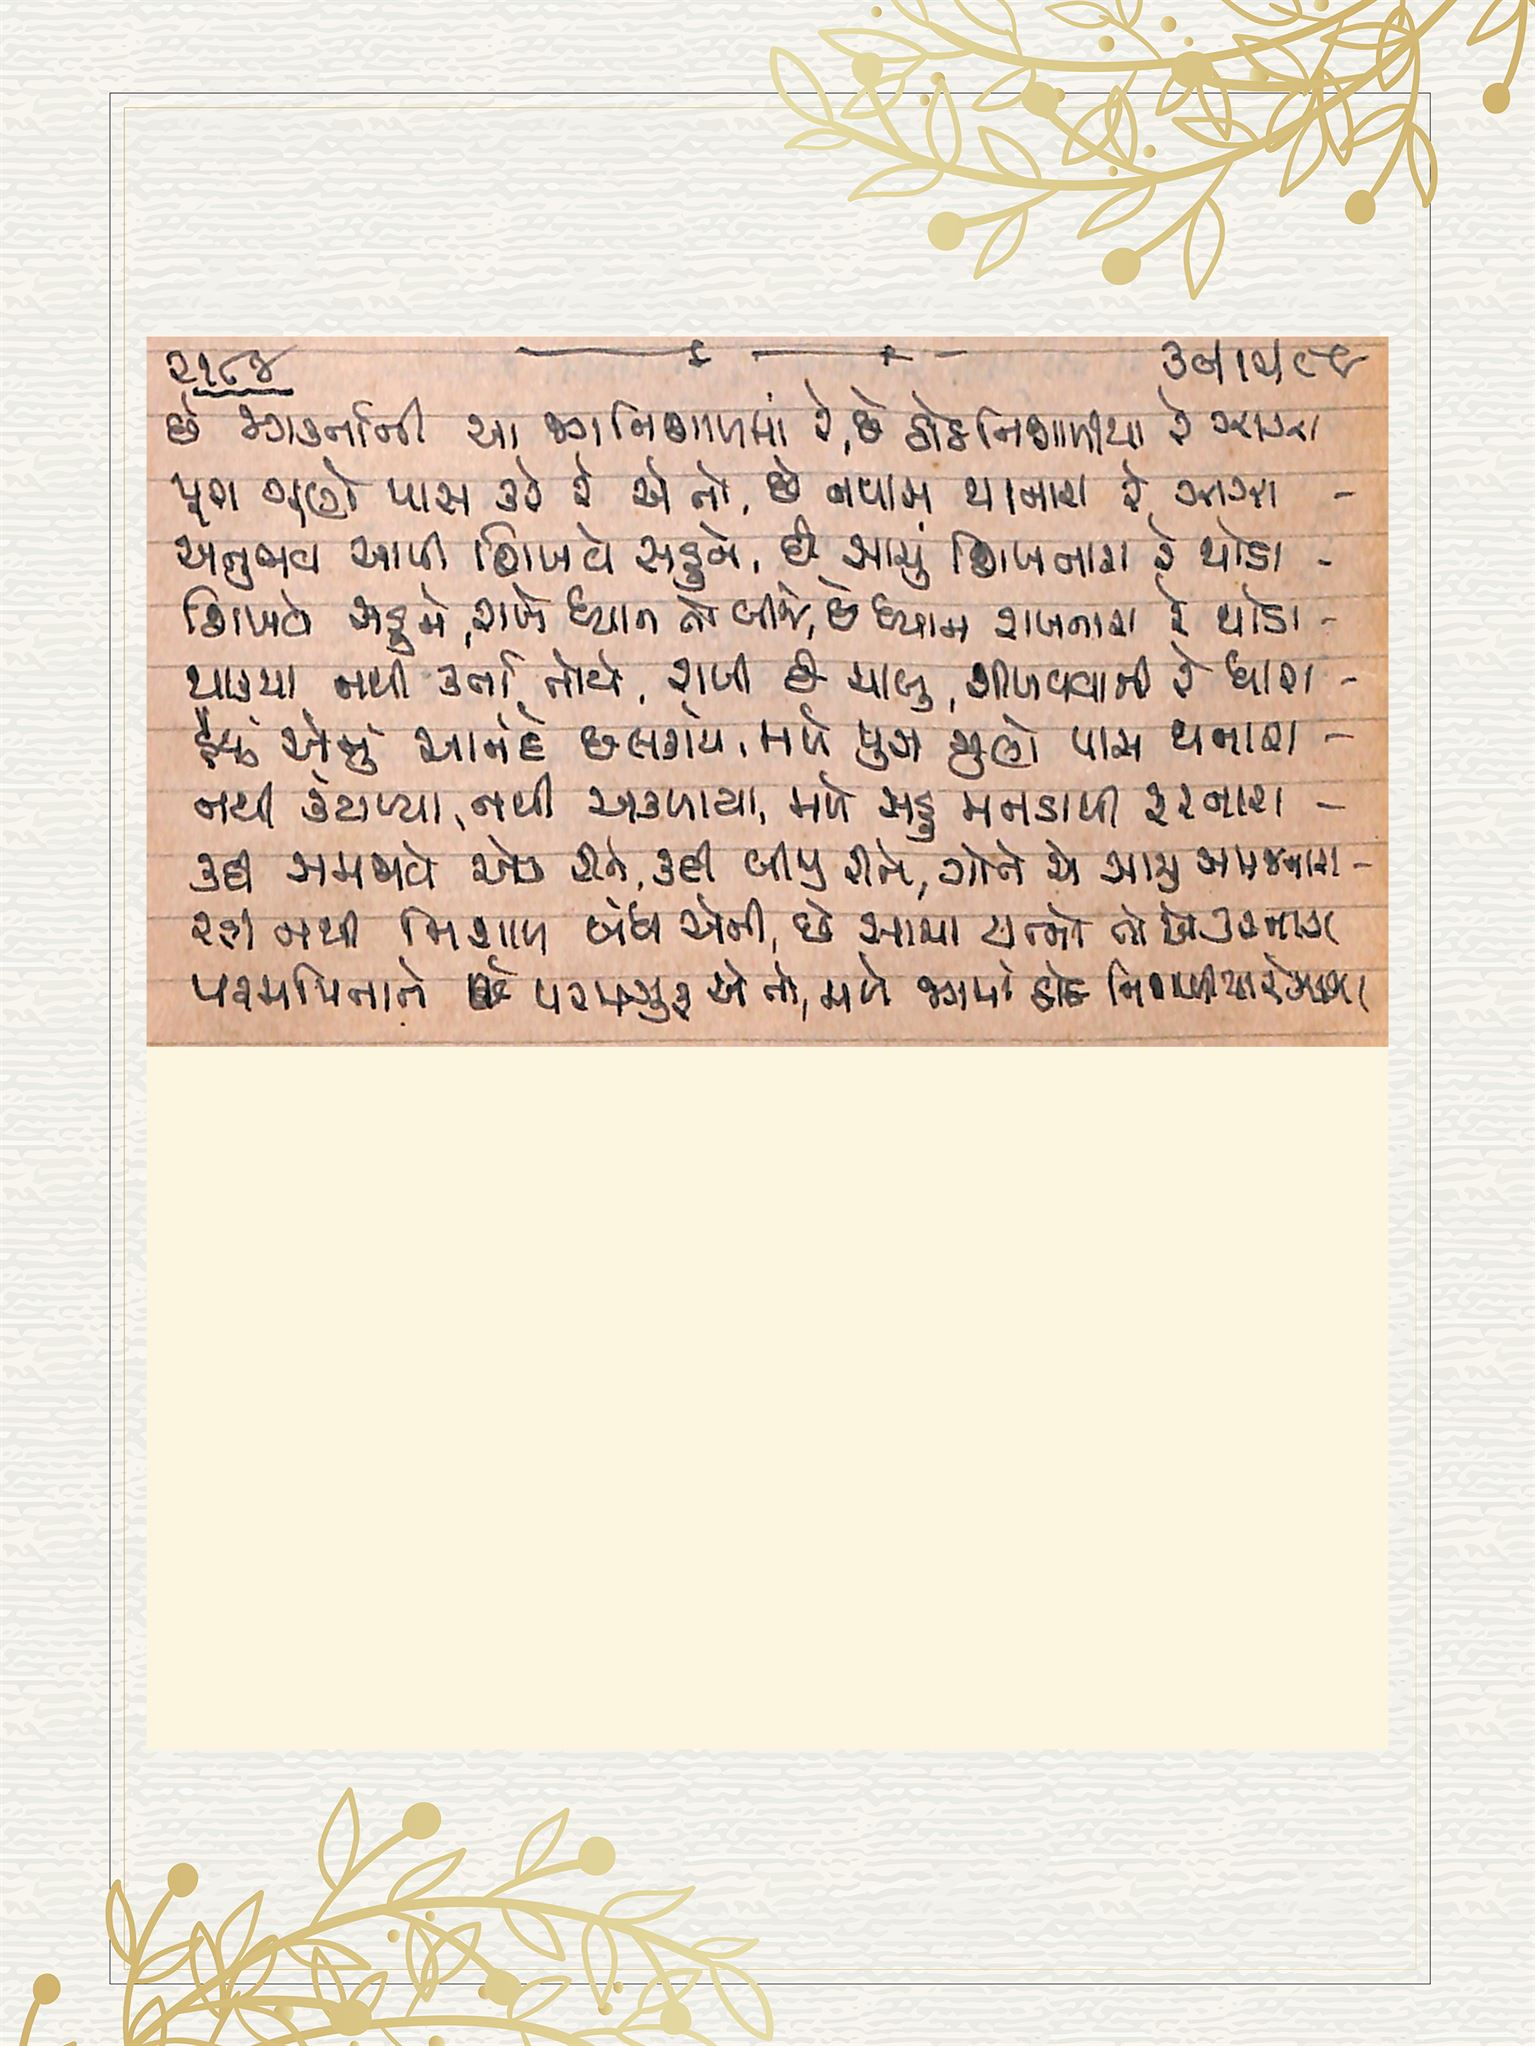 ૨૧૮૪ ૩૦/૧૨/૮૯
છે જગકર્તાની આ જગનિશાળમાં રે, છે કોઈ નિશાળીયા રે સાચા
પૂરા ગુણો પાસ કરે રે એ તો, છે નપાસ થાનારા રે ઝાઝા -
અનુભવ આપી શિખવે સહુને, છે સાચું શિખનારા રે થોડા -
શિખવે સહુને, રાખે ધ્યાન તો બીજે, છે ધ્યાન રાખનારા રે થોડા -
થાક્યા નથી કર્તા તોયે, રાખી છે ચાલુ, શીખવવાની રે ધારા -
હૈયું એનું આનંદે છલકાયે, મળે પુરા ગુણે પાસ થનારા -
નથી કંટાળ્યા, નથી અકળાયા, મળે સહુ મનડાથી ફરનારા -
કદી સમજાવે એક રીતે, કદી બીજી રીતે, ગોતે એ સાચું સમજનારા -
રહી નથી નિશાળ બંધ એની, છે આચાર્યો તો એ કરનારા
પરમપિતાને છે પરમગુરુ એ તો, મળે જગમાં કોઈ નિશાળીયા રે સાચા